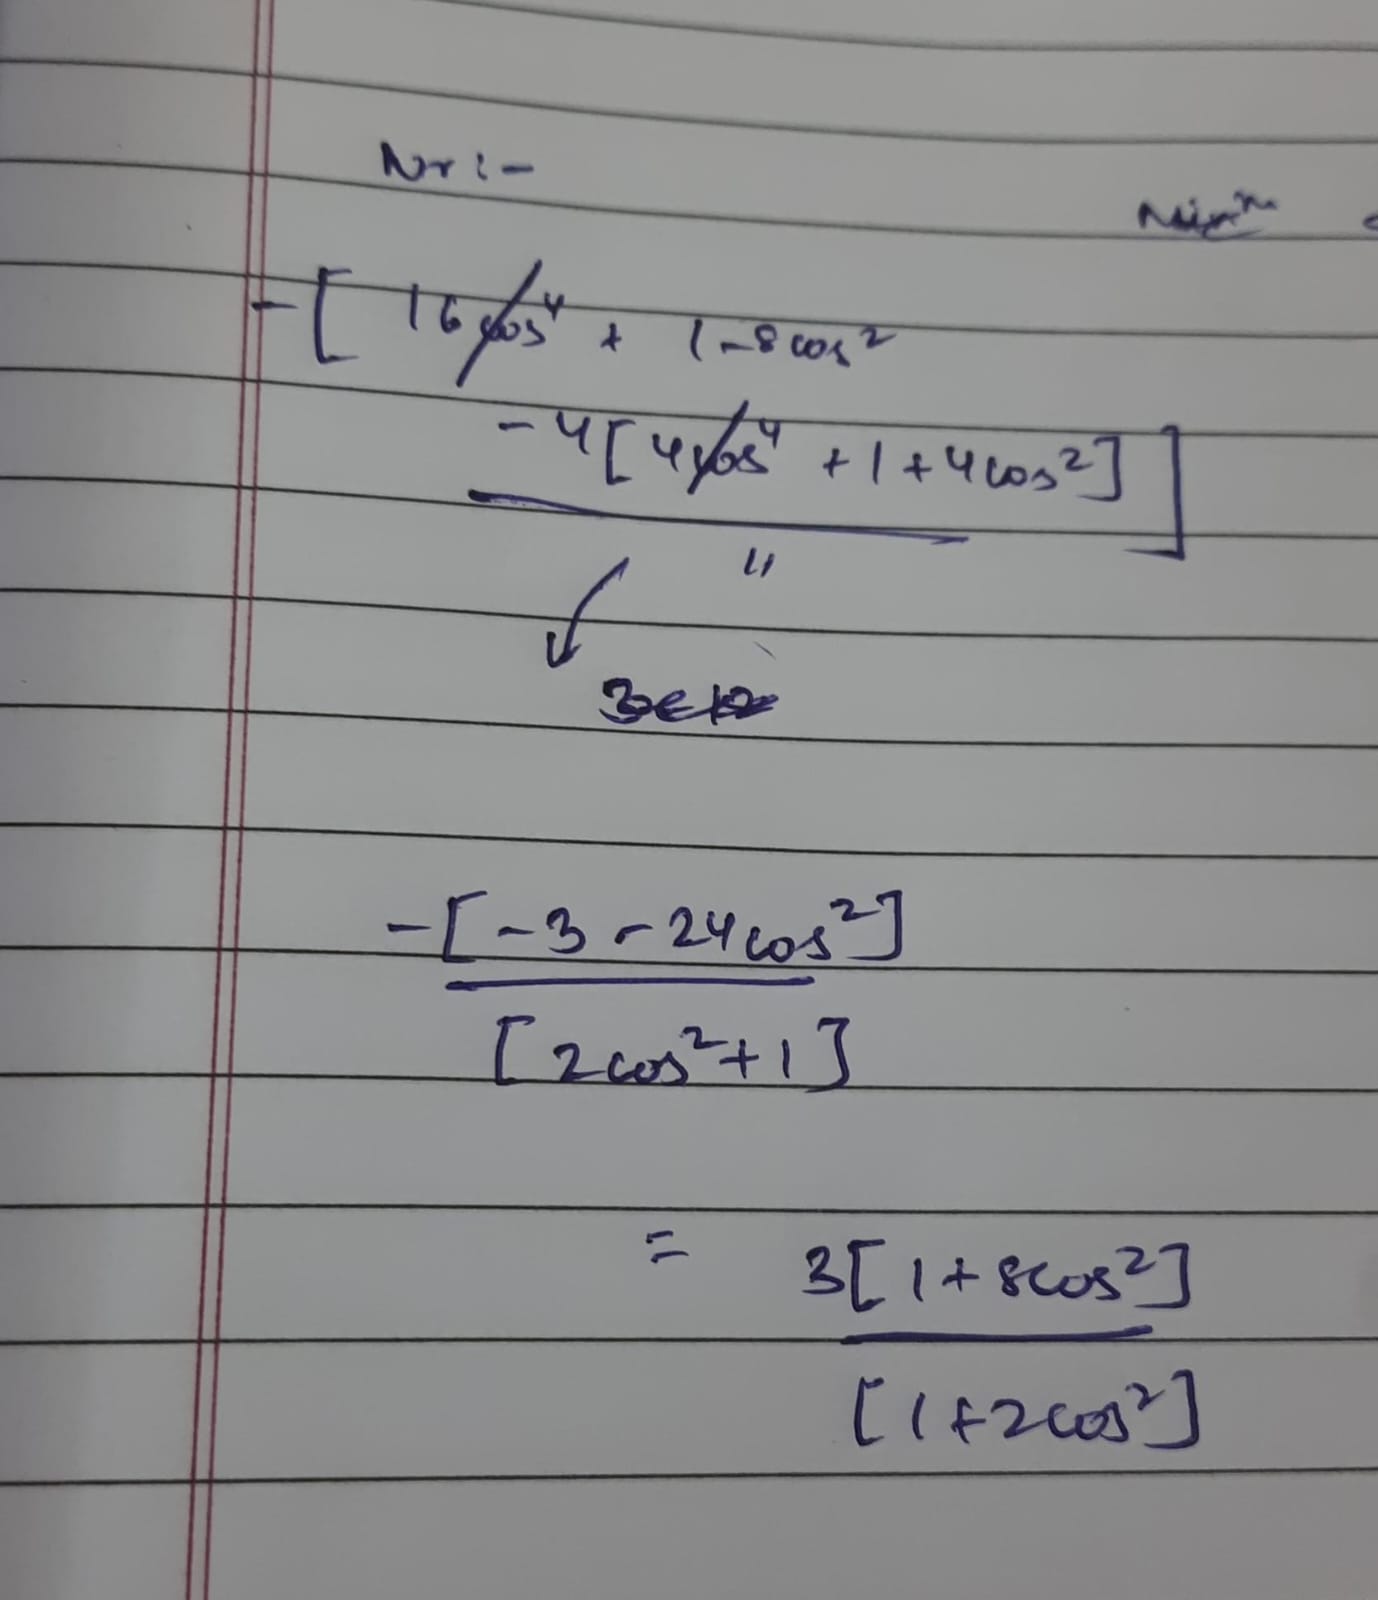 Nr :-
Minm
-[ 16cos⁴ + 1-8cos²
-4[4cos⁴ +1+4cos²] ]
"
-[-3-24cos²]
[2cos²+1]
= 3[1+8cos²]
[1+2cos²]